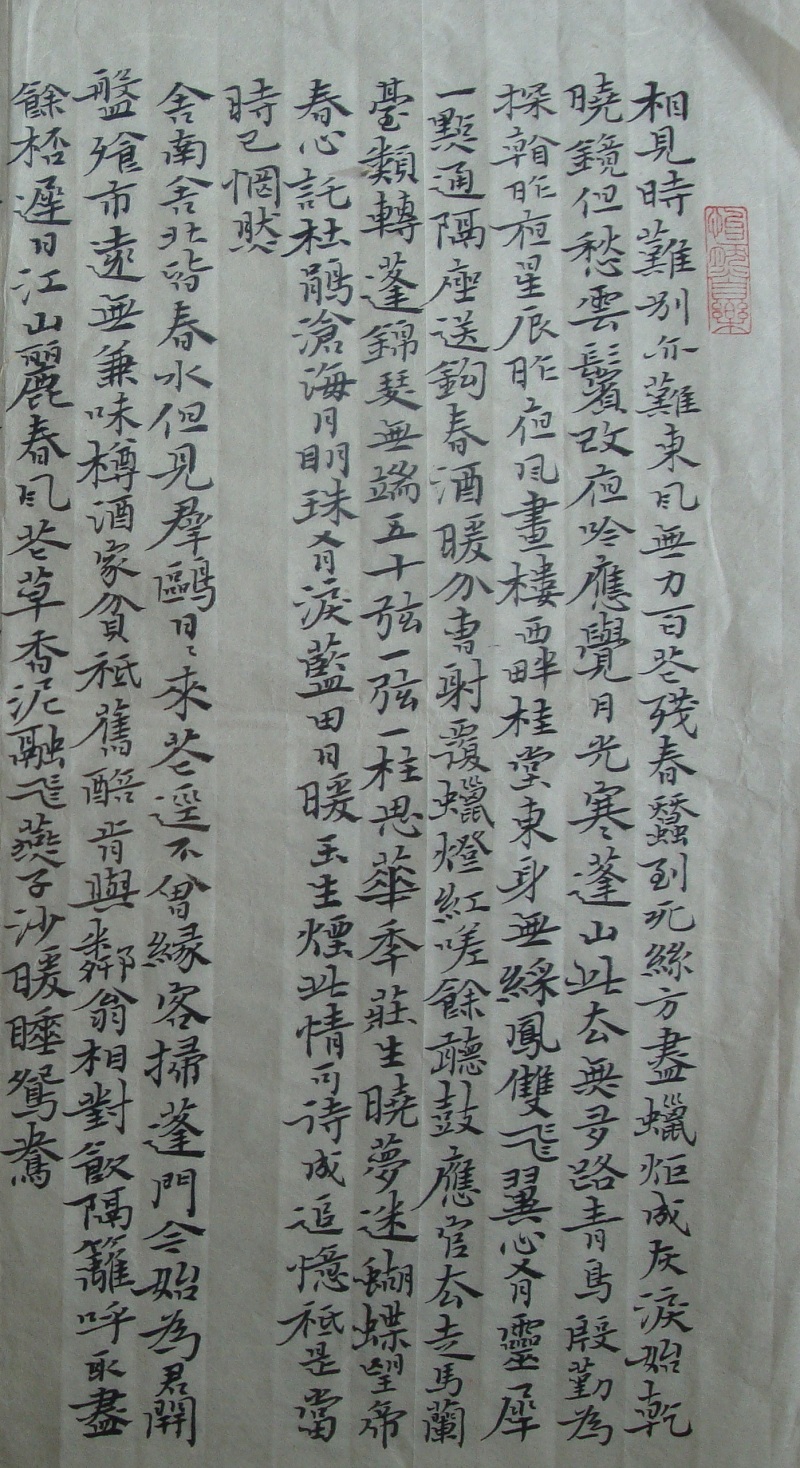 相見時難別亦難東風無力百花殘春蠶到死絲方盡蠟炬成灰淚始乾
曉鏡但愁雲鬢改夜吟應覺月光寒蓬山此去無多路青鳥殷勤為
探看昨夜星辰昨夜風畫樓西畔桂堂東身無綵鳳雙飛翼心有靈犀
一點通隔座送鈎春酒暖分曹射覆蠟燈紅嗟餘聽鼓應官去走馬蘭
臺類轉蓬錦瑟無端五十弦一弦一柱思華年莊生曉夢迷蝴蝶望帝
春心託杜鵑滄海月明珠有淚藍田日暖玉生煙此情可待成追憶祗是當
時已惘然
舍南舍北皆春水但見羣鷗日日來花逕不曾緣客掃蓬門今始為君開
盤飱市遠無兼味樽酒家貧祗舊醅肯與鄰翁相對飲隔籬呼取盡
餘桮遲日江山麗春風花草香泥融飛燕子沙暖睡鴛鴦